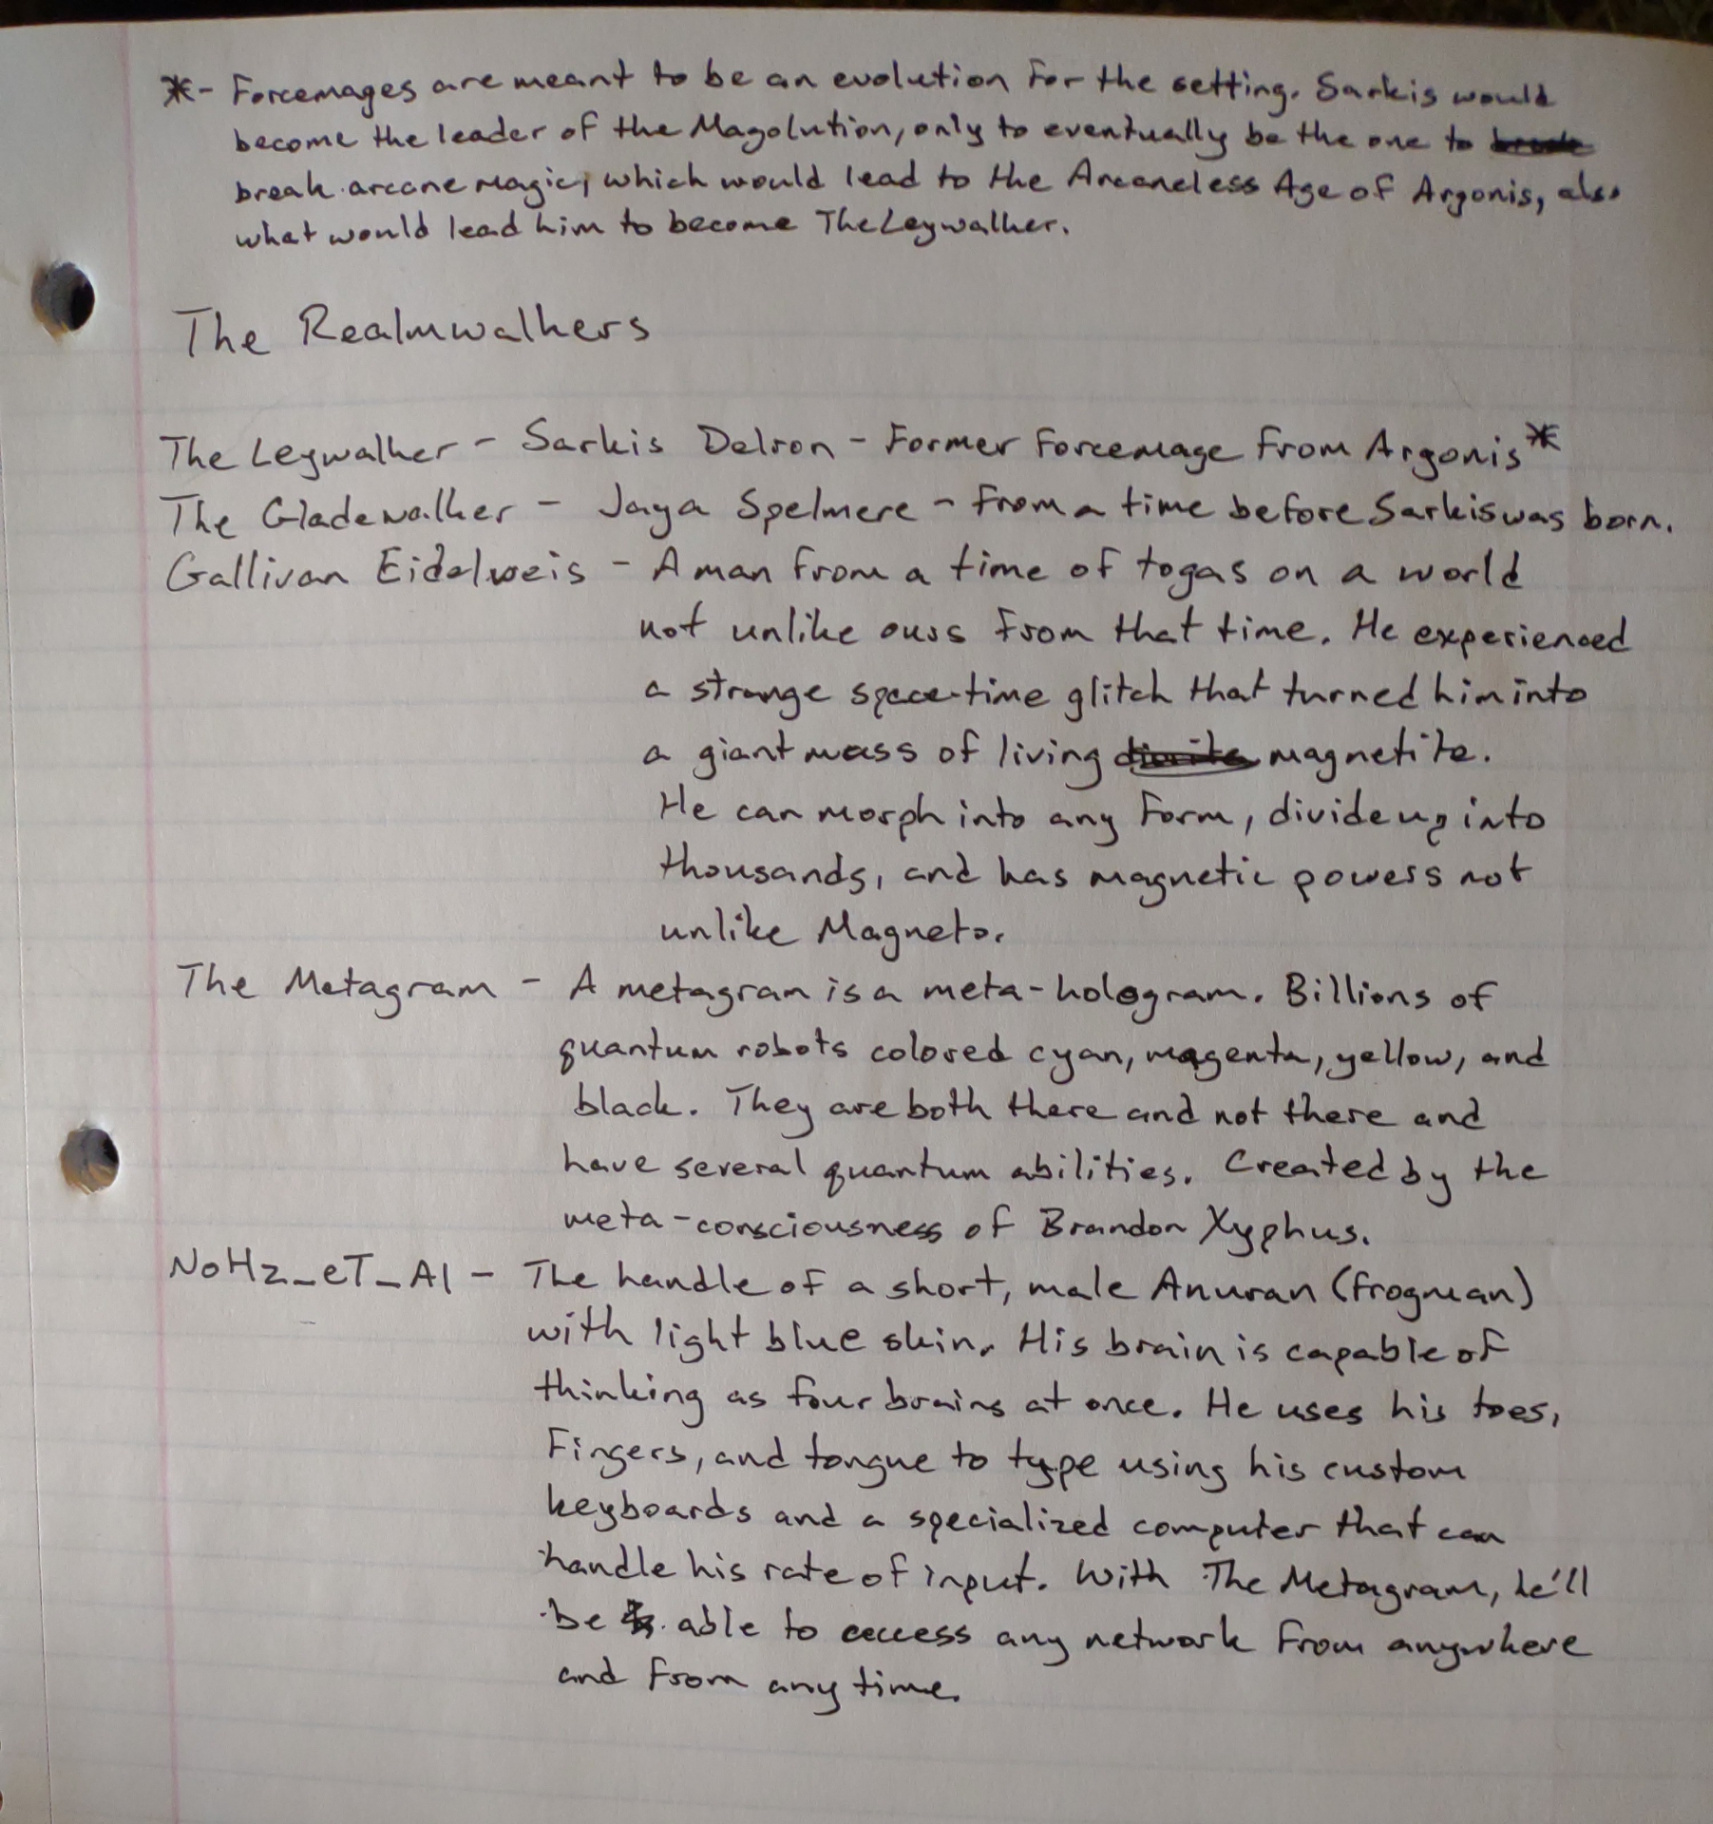 *- Forcemages are meant to be an evolution for the setting. Sarkis would
become the leader of the Magolution, only to eventually be the one to
break arcane magic, which would lead to the Arcaneless Age of Argonis, also
what would lead him to become The Leywalker.
The Realmwalkers
The Leywalker - Sarkis Delron - Former Forcemage from Argonis*
The Gladewalker - Jaya Spelmere - From a time before Sarkis was born.
Gallivan Eidelweis - A man from a time of togas on a world
not unlike ours from that time. He experienced
a strange space-time glitch that turned him into
a giant mass of living magnetite.
He can morph into any form, divide up into
thousands, and has magnetic powers not
unlike Magneto.
The Metagram - A metagram is a meta-hologram. Billions of
quantum robots colored cyan, magenta, yellow, and
black. They are both there and not there and
have several quantum abilities. Created by the
meta-consciousness of Brandon Xyphus.
NoHz_eT_Al - The handle of a short, male Anuran (frogman)
with light blue skin. His brain is capable of
thinking as four brains at once. He uses his toes,
fingers, and tongue to type using his custom
keyboards and a specialized computer that can
handle his rate of input. With The Metagram, he'll
be able to access any network from anywhere
and from any time.